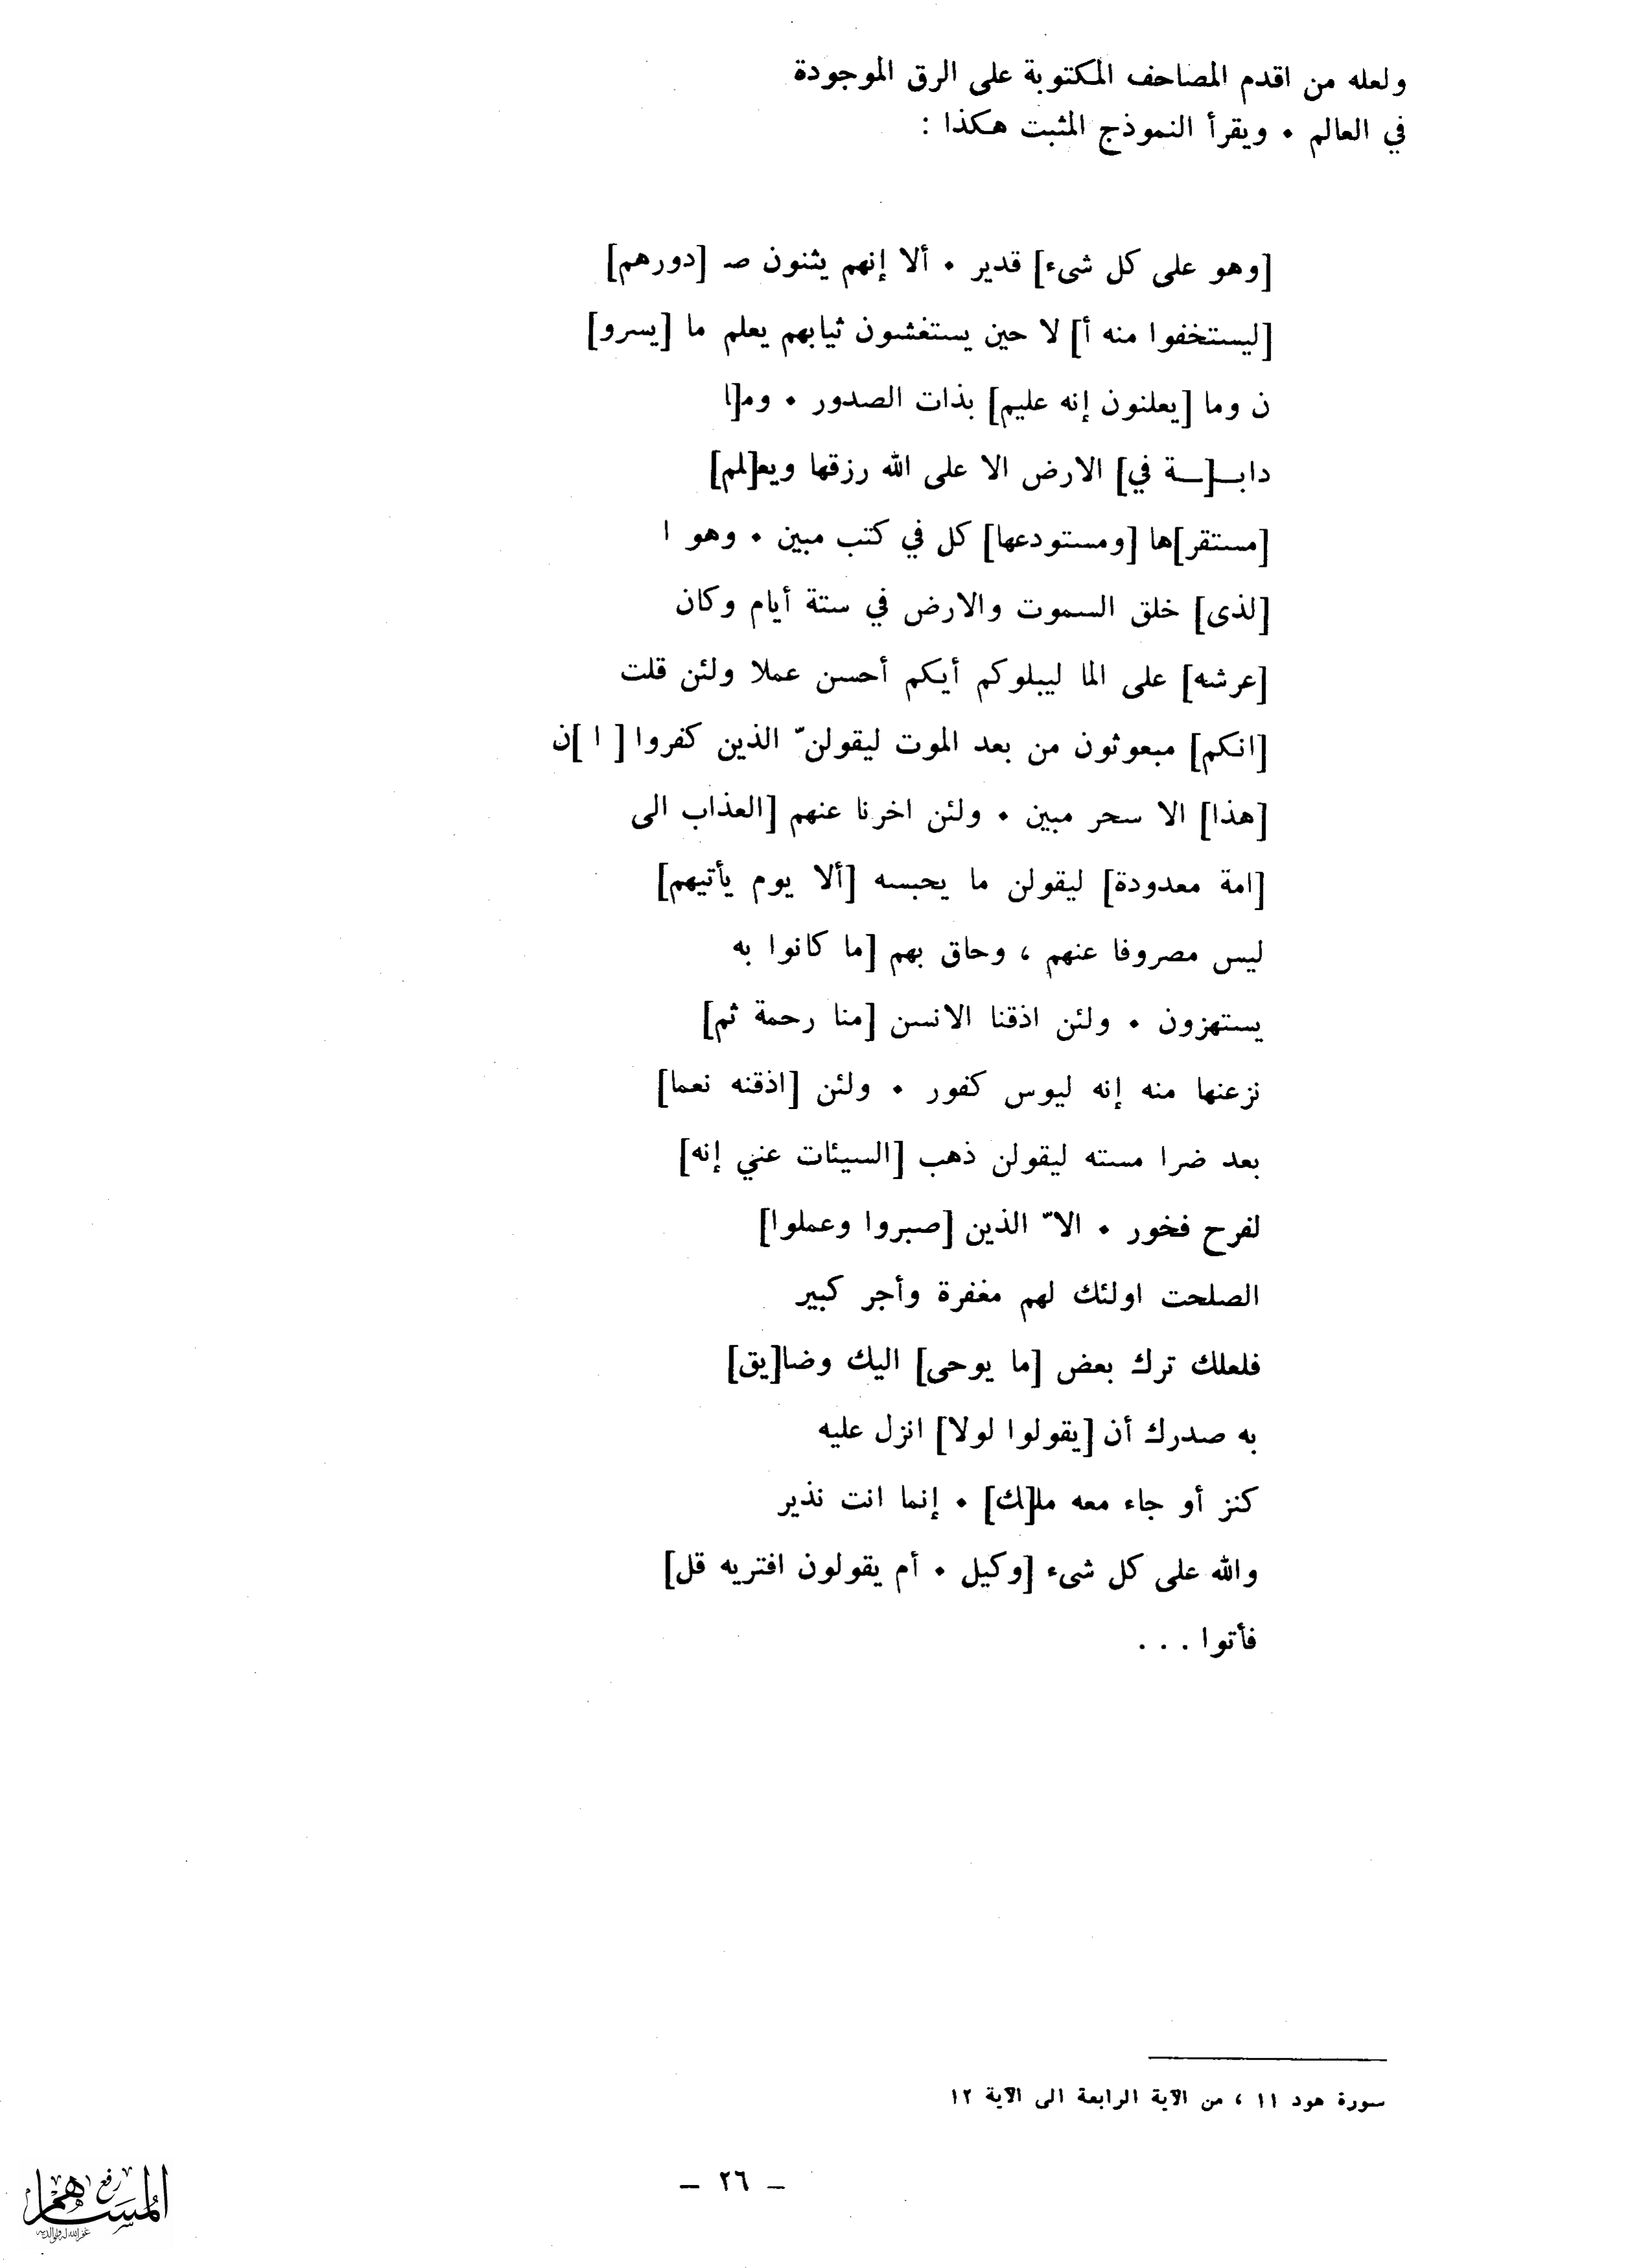 ولعله من اقدم المصاحف المكتوبة على الرق الموجودة
في العالم • ويقرأ النموذج المثبت هكذا :
[وهو على كل شىء] قدير • ألا إنهم يثنون صـ [دورهم]
[ليستخفوا منه أ] لا حين يستغشون ثيابهم يعلم ما [يسرو]
ن وما [يعلنون إنه عليم] بذات الصدور • ومـ[ا
دابـ[ـة في] الارض الا على الله رزقها ويعـ[لم]
[مستقر]ها [ومستودعها] كل في كتب مبين • وهو ا
[لذى] خلق السموت والارض في ستة أيام وكان
[عرشه] على الما ليبلوكم أيكم أحسن عملا ولئن قلت
[انكم] مبعوثون من بعد الموت ليقولنّ الذين كفروا [ ا ]ن
[هذا] الا سحر مبين • ولئن اخرنا عنهم [العذاب الى
[امة معدودة] ليقولن ما يحبسه [ألا يوم يأتيهم]
ليس مصروفا عنهم ، وحاق بهم [ما كانوا به
يستهزون • ولئن اذقنا الانسن [منا رحمة ثم]
نزعنها منه إنه ليوس كفور • ولئن [اذقنه نعما]
بعد ضرا مسته ليقولن ذهب [السيئات عني إنه]
لفرح فخور • الاّ الذين [صبروا وعملوا]
الصلحت اولئك لهم مغفرة وأجر كبير
فلعلك ترك بعض [ما يوحى] اليك وضا[يق]
به صدرك أن [يقولوا لولا] انزل عليه
كنز أو جاء معه ملـ[ك] • إنما انت نذير
والله على كل شىء [وكيل • أم يقولون افتريه قل]
فأتوا . . .
سورة هود ١١ ، من الآية الرابعة الى الآية ١٢
– ٢٦ –
رفع المساهم
غفر الله له ولوالديه